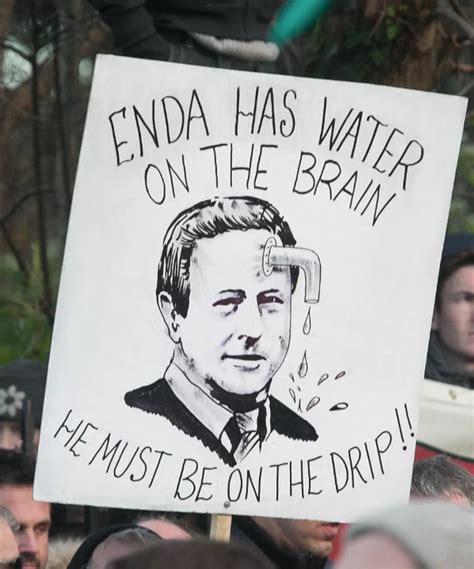 ENDA HAS WATER
ON THE BRAIN
HE MUST BE ON THE DRIP!!